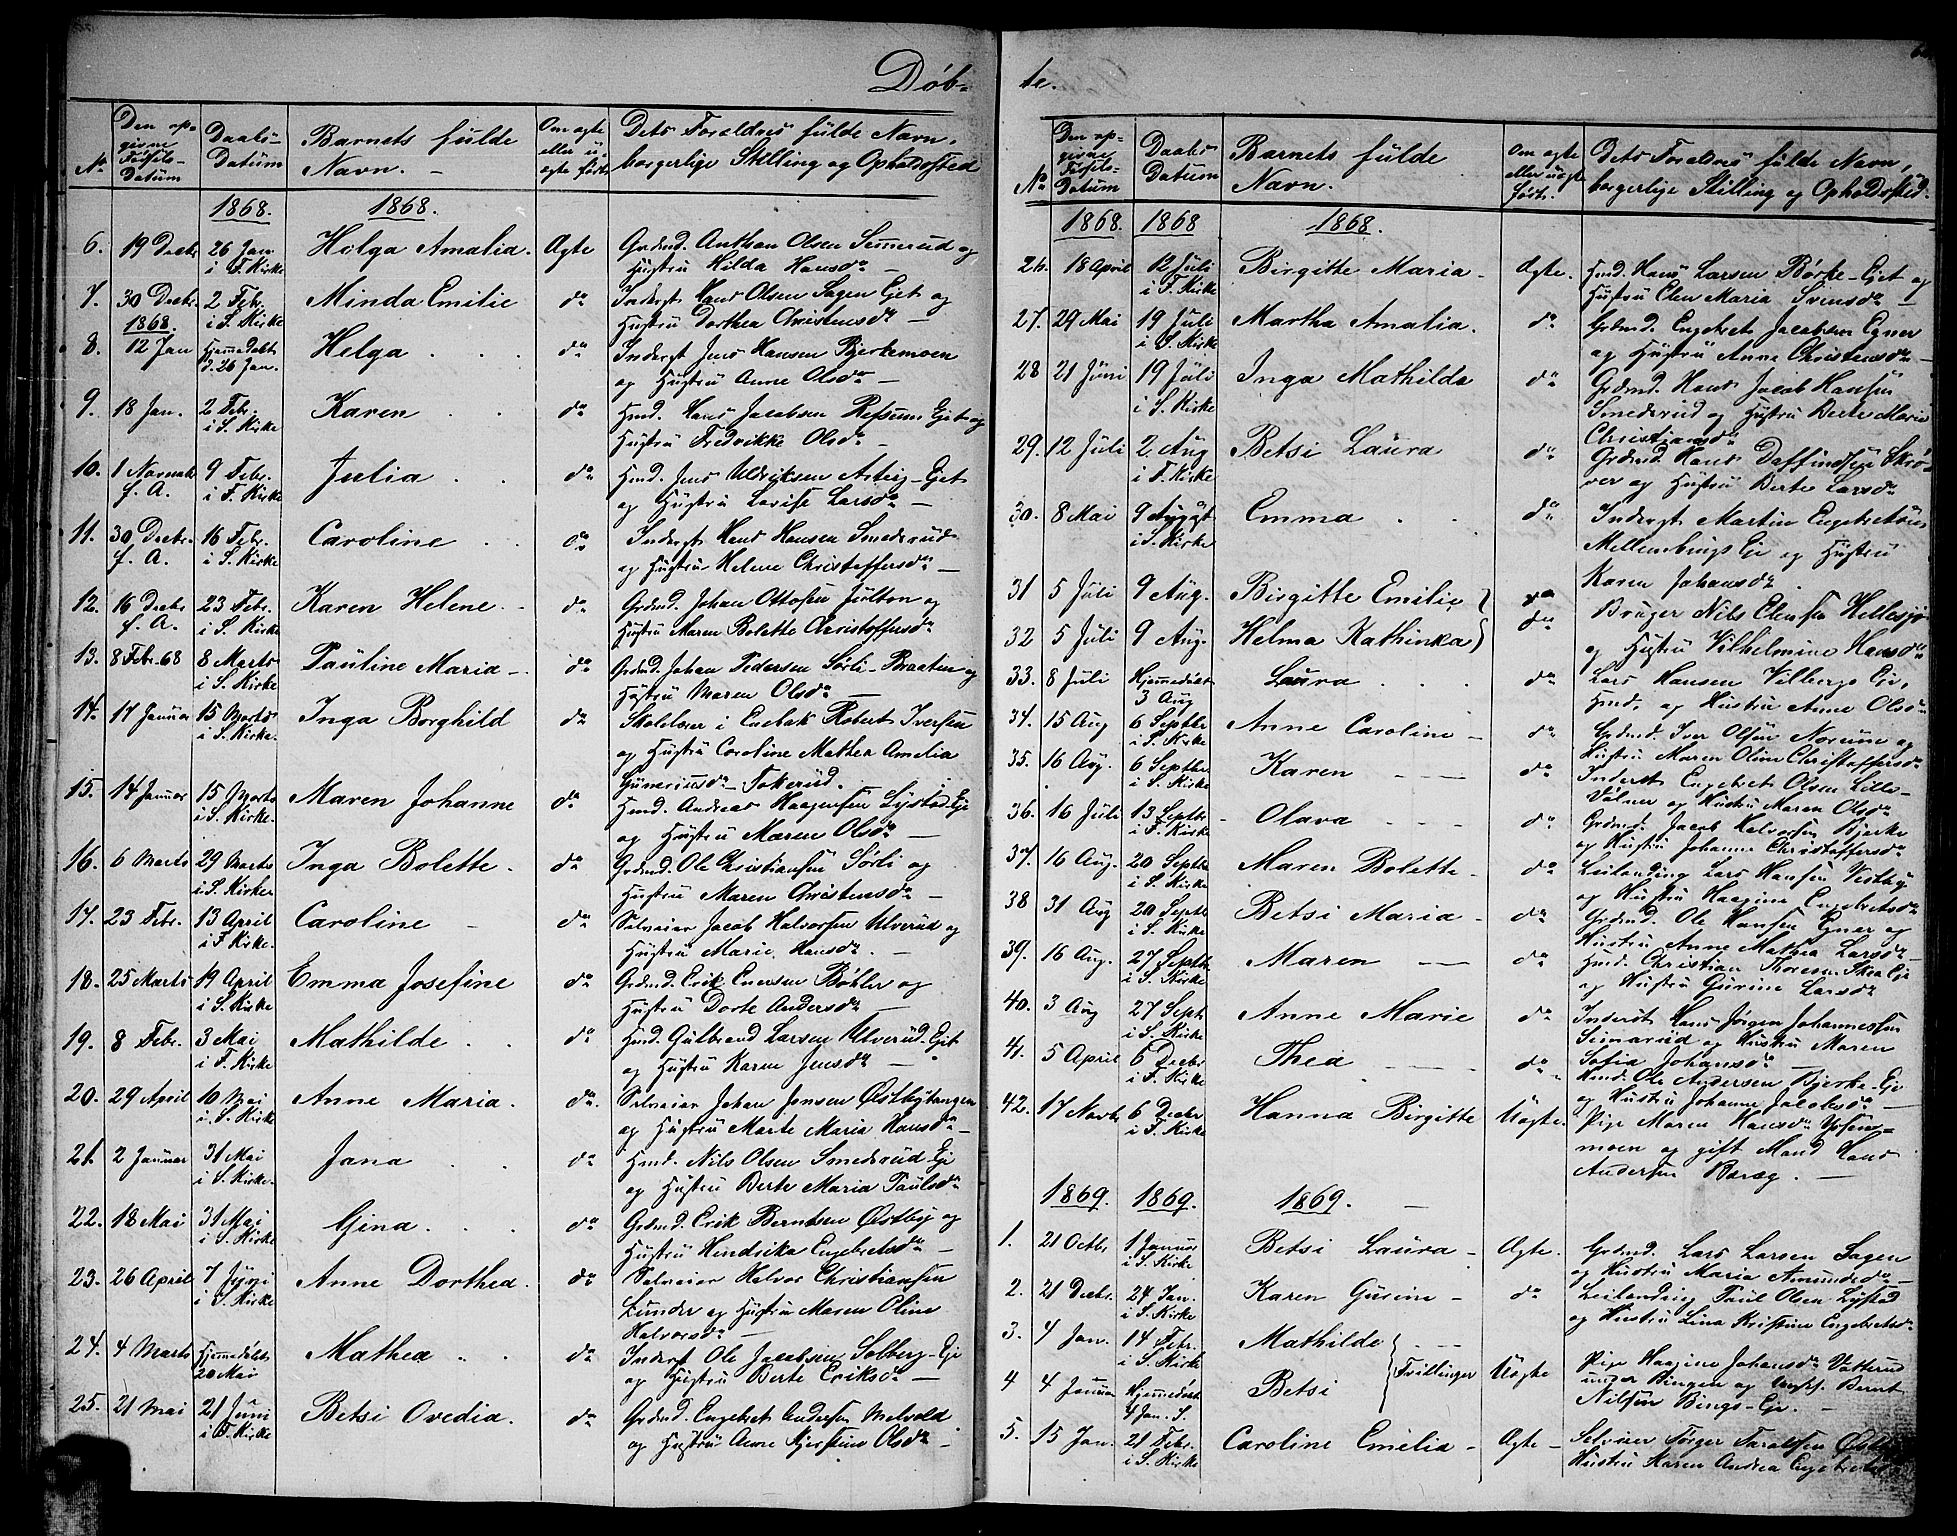 Døb-
No
Den op-
givne
Fødsels-
Datum
Daabs-
Datum
Barnets fulde
Navn.
Om ægte
eller u-
ægte født.
Dets Forældres fulde Navn,
borgerlige Stilling og Opholdssted
1868. 1868.
6. 19 Decbr 26 Jan Helga Amalia. Ægte Grdmd. Anthon Olsen Semerud og
i F. Kirke Hustru Hilda Hansdr
7. 30 Decbr. 2 Febr. Minda Emilie do Inderst Hans Olsen Sagen Ejet og
1868. i S. Kirke Hustru Dorthea Christensdr
8. 12 Jan Hjemmedøbt Helga do Inderst Jens Hansen Bjerkemoen
d. 26 Jan. og Hustru Anne Olsdr
9. 18 Jan. 2 Febr. Karen do Hmd. Hans Jacobsen Refsum Ejet og
i S. Kirke Hustru Fredrikke Olsdr
10. 1 Novmb. 9 Febr. Julia do Hmd. Jens Uldriksen Asteig-Ejet
f. A. i F. Kirke og Hustru Lovise Larsdr
11. 30 Decbr. 16 Febr. Caroline do Inderst Hans Hansen Smedsrud
f. A. i S. Kirke og Hustru Helene Christoffersdr
12. 16 Decbr 23 Febr. Karen Helene do Grdmd. Johan Ottosen Julton og
f. A. i S. Kirke Hustru Maren Bolette Christoffersdr
13. 8 Febr. 68 8 Marts Pauline Maria do Grdmd. Johan Pedersen Sørli-Braaten og
i S. Kirke Hustru Maren Olsdr
14. 17 Januar 15 Marts Inga Borghild do Skolelærer i Enebak Robert Iversen
i S. Kirke. og Hustru Caroline Mathea Amelia
Gunerius dr Tokerud.
15. 14 Januar 15 Marts Maren Johanne do Hmd. Andreas Haagensen Lystad-Eje
i S. Kirke. og Hustru Maren Olsdr
16. 6 Marts 29 Marts Inga Bolette. do Grdmd. Ole Christiansen Sørli og
i S. Kirke Hustru Maren Christensdr
17. 23 Febr. 13 April Caroline do Selveier Jacob Halvorsen Ulverud og
i F. Kirke. Hustru Marie Hansdr
18. 25 Marts 19 April Emma Josefine do Grdmd. Erik Enersen Bøhler og
i S. Kirke Hustru Dorte Andersdr
19. 8 Febr. 3 Mai Mathilde do Hmd. Gulbrand Larsen Ulverud-Ejet
i F. Kirke og Hustru Karen Jensdr
20. 29 April 10 Mai Anne Maria. do. Selveier Johan Jensen Østbytangen
i S. Kirke og Hustru Marte Maria Hansdr
21. 2 Januar 31 Mai Jana do Hmd. Nils Olsen Smedsrud Eje
i S. Kirke. og Hustru Berte Maria Paulsdr
22. 18 Mai 31 Mai Gina do Grdmd. Erik Berntsen Østby og
i S. Kirke Hustru Hendrika Engebretsdr
23. 26 April 7 Juni Anne Dorthea. do Selveier Halvor Christiansen
i S. Kirke Lunder og Hustru Maren Oline
Halvorsdr
24. 4 Marts Hjemmedøbt Mathea do Inderst Ole Jacobsen Solberg-Eje
20 Mai og Hustru Berte Eriksdr
25. 21 Mai 21 Juni Betsi Ovedia. do Grdmd. Engebret Andersen Melvold
i F. Kirke og Hustru Anne Kjerstine Olsdr
te.
No
Den op-
givne
Fødsels-
Datum
Daabs
Datum
Barnets fulde
Navn.
Om ægte
eller uægte
født.
Dets Forældres fulde Navn,
borgerlige Stilling og Opholdssted.
1868. 1868 1868.
26. 18 April 12 Juli Birgitte Maria Ægte. Hmd. Hans Larsen Børke-Ejet og
i F. Kirke Hustru Elen Maria Svensdr
27. 29 Mai 19 Juli Martha Amalia. do Grdmd. Engebret Jacobsen Egner
i S. Kirke og Hustru Anne Christensdr
28 21 Juni 19 Juli Inga Mathilda do Grdmd. Hans Jacob Hansen
i S. Kirke Smedsrud og Hustru Berte Marie
Christiansdr
29. 12 Juli 2 Aug Betsi Laura do Grdmd. Hans Daffindsen Skrø-
i F. Kirke ver og Hustru Berte Larsdr
30. 8 Mai 9 August Emma do Inderst Martin Engebretsen
i S. Kirke Mellembugs Eje og Hustru
Karen Johansdr
31 5 Juli 9 Aug. Birgitte Emilie do Bruger Nils Elensen Hellesjø
32 5 Juli 9 Aug. Helma Kathinka do og Hustru Vilhelmine Hansdr
33. 8 Juli Hjemmedøbt Laura do Lars Hansen Vilbergs Eje,
3 Aug Hmd. og Hustru Anne Olsdr
34. 15 Aug 6 Septbr Anne Caroline do Grdmd. Iver Olsen Norum og
i S. Kirke Hustru Maren Oline Christoffersdr
35. 16 Aug. 6 Septbr Karen do Inderst Engebret Olsen Lille-
i S. Kirke Vølner og Hustru Maren Olsdr
36. 16 Juli 13 Septbr Olava do Grdmd. Jacob Halvorsen Bjerke
i F. Kirke og Hustru Johanne Christoffersdr
37. 16 Aug. 20 Septbr Maren Bolette do Leilænding Lars Hansen Vestby
i S. Kirke og Hustru Haagine Engebretsdr
38 31 Aug 20 Septbr Betsi Maria do Grdmd. Ole Hansen Egner og
i S. Kirke Hustru Anne Mathea Larsdr
39. 16 Aug. 27 Septbr Maren do Hmd. Christian Thoresen Thea Eje
i S. Kirke og Hustru Gurine Larsdr
40. 3 Aug 27 Septbr Anne Marie do Inderst Hans Jørgen Johannessen
i S. Kirke Seimarud og Hustru Maren
Sofia Johansdr
41. 5 April 6 Decbr Thea do Hmd. Ole Andersen Bjerke-Eje
i F. Kirke og Hustru Johanne Jacobsdr
42. 17 Novbr 6 Decbr Hanna Birgitte Uægte. Pige Maren Hansdr
i F. Kirke moen og gift Mand Hans
Andersen Baræg.
1869. 1869. 1869.
1. 21 Octbr. 1 Januar Betsi Laura Ægte. Grdmd. Lars Larsen Sagen
i S. Kirke og Hustru Maria Amundsdr
2. 21 Decbr. 24 Jan. Karen Gurine do Leilænding Paul Olsen Lystad
i S. Kirke og Hustru Lina Kristine Engebretsdr
3. 4 Jan. 14 Febr. Mathilde
i S. Kirke Tvillinger Uægte Pige Haagine Johansdr Vatterud
4 4 Januar Hjemmedøbt Betsi under Bingen og Ungk. Bernt
4 Jan. S. Nilsen Bings-Eje.
5. 15 Jan. 21 Febr. Caroline Emelia Ægte Selveier Torger Taraldsen
i S. Kirke Hustru Karen Andrea